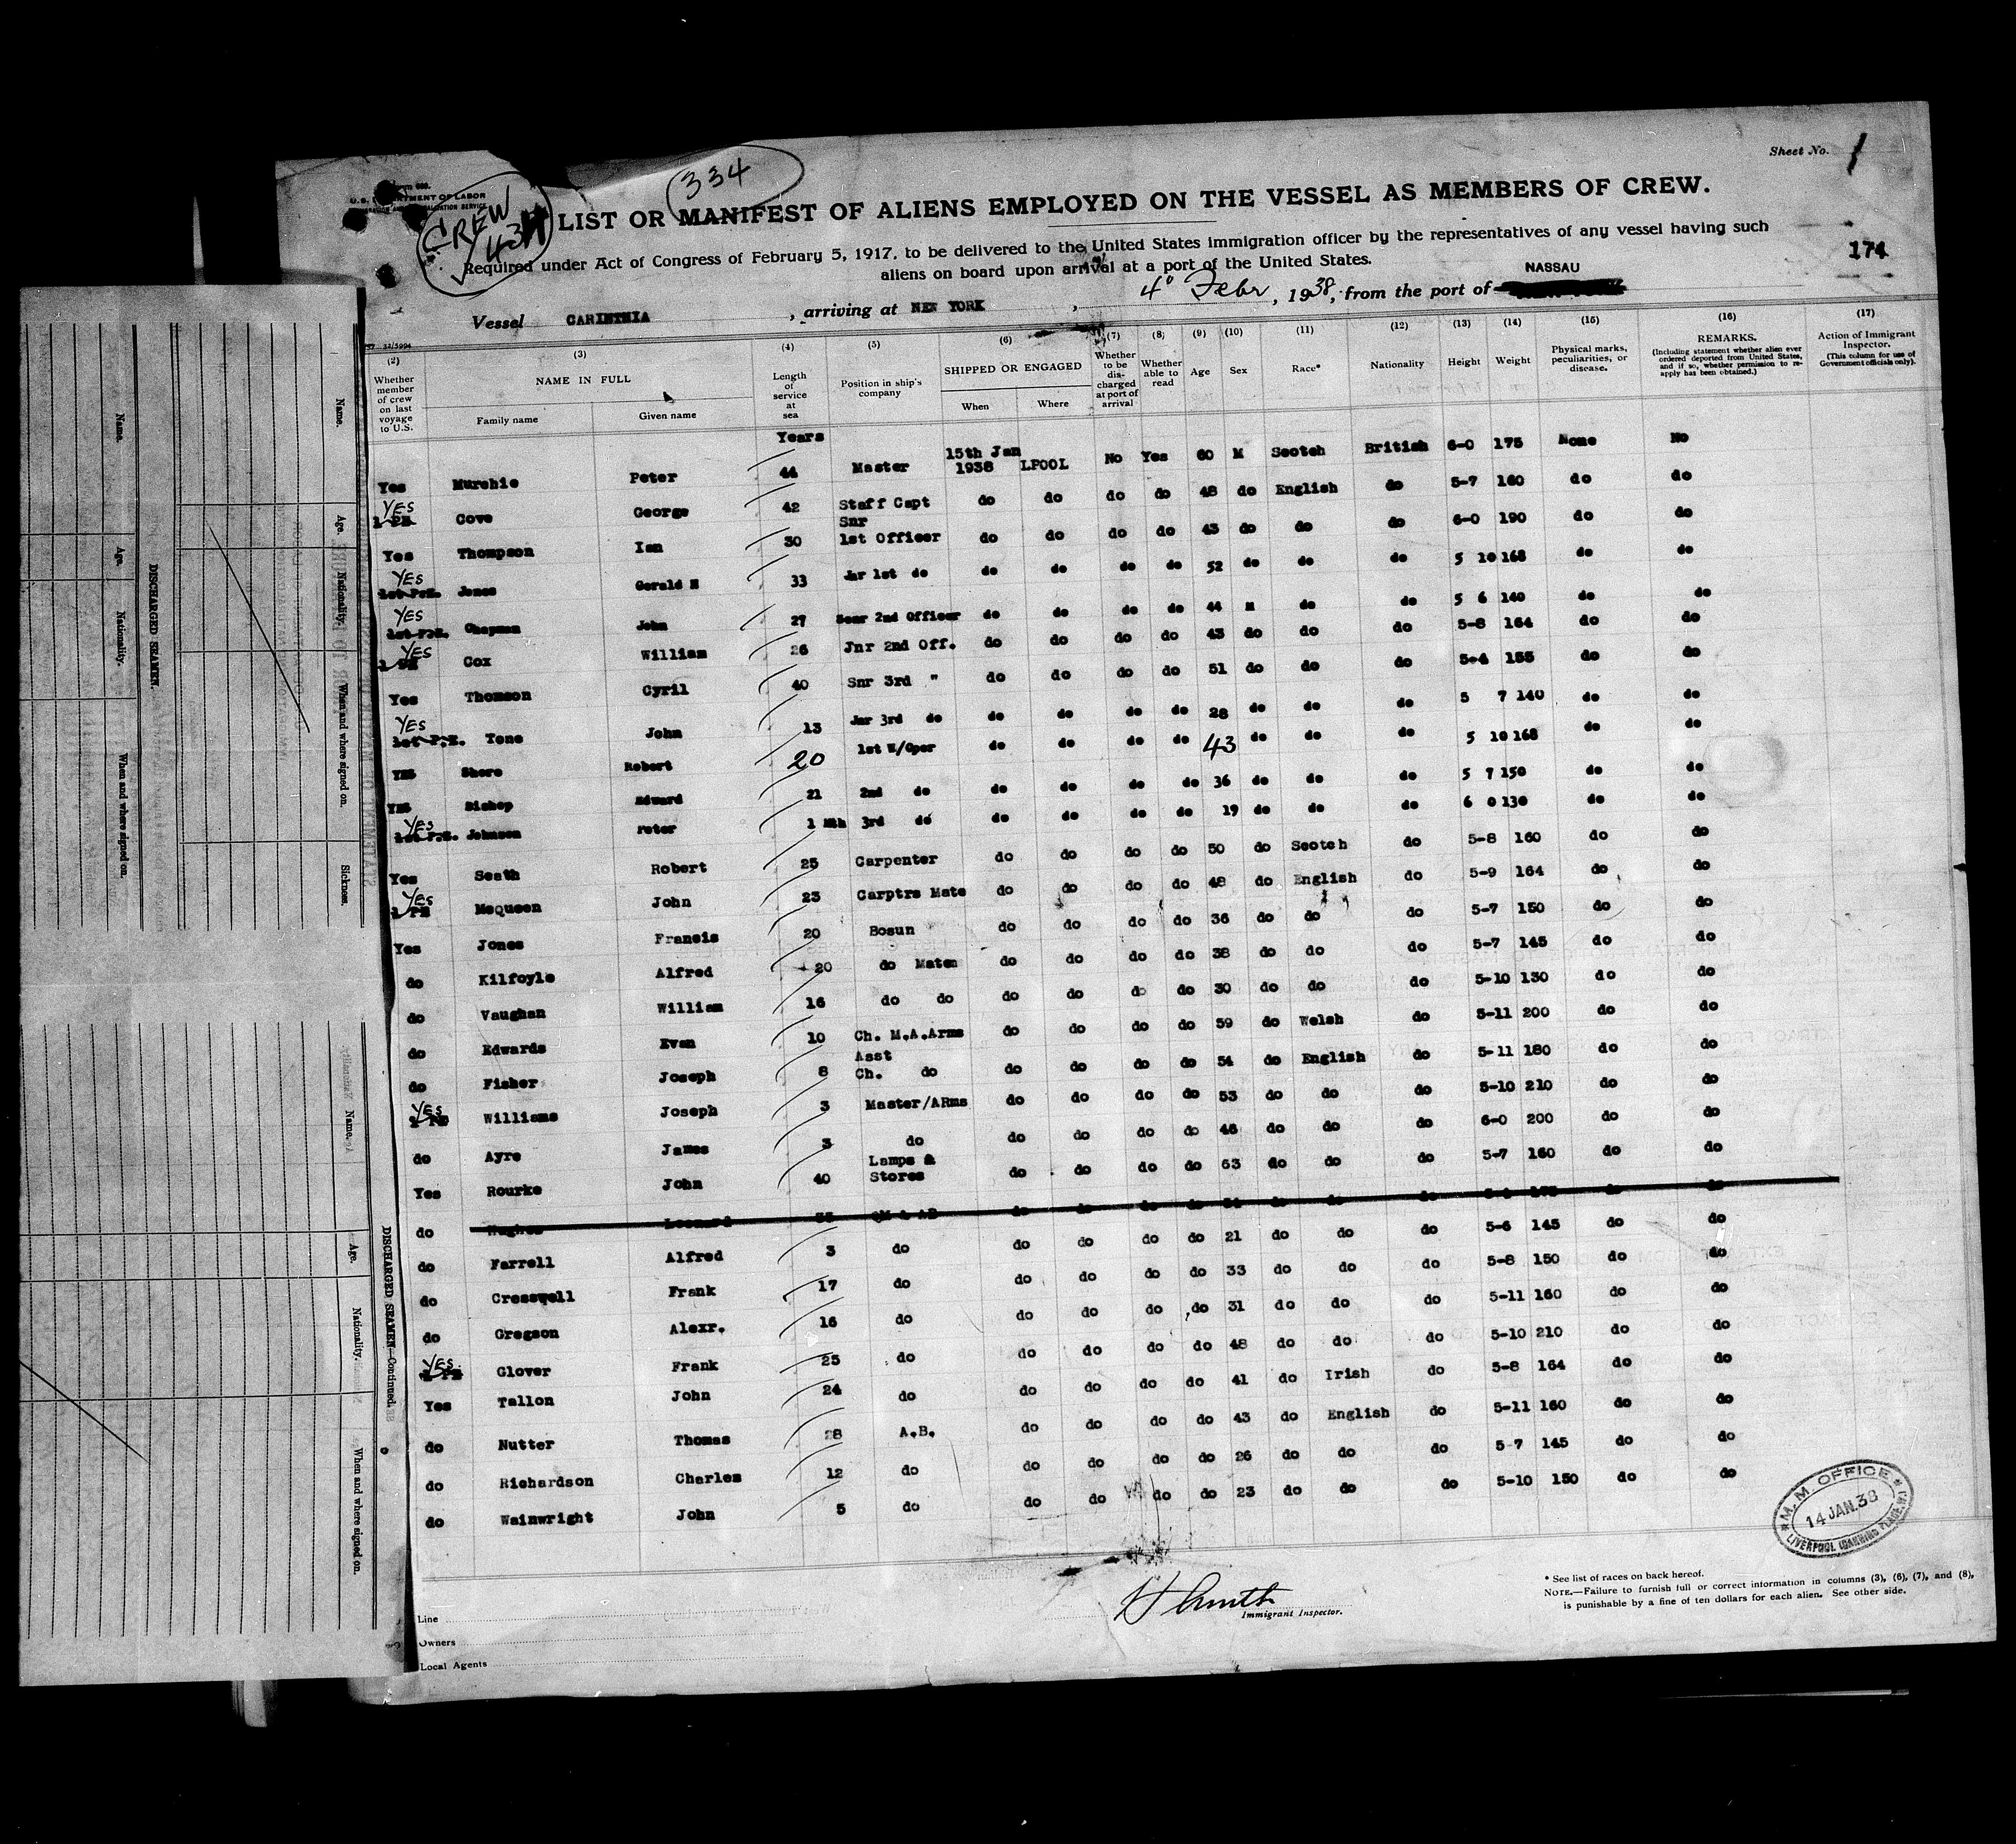 Sheet No. 1
334
U.S. DEPARTMENT OF LABOR
CREW
LIST OR MANIFEST OF ALIENS EMPLOYED ON THE VESSEL AS MEMBERS OF CREW.
Required under Act of Congress of February 5, 1917, to be delivered to the United States immigration officer by the representatives of any vessel having such
aliens on board upon arrival at a port of the United States.
174
NASSAU
Vessel CARINTHIA, arriving at NEW YORK, 4" Febr, 1938, from the port of
(2) (3) (4) (5) (6) (7) (8) (9) (10) (11) (12) (13) (14) (15) (16) (17)
Whether member of crew on last voyage to U.S. NAME IN FULL Family name Given name Length of service at sea Position in ship's company SHIPPED OR ENGAGED When Where Whether to be discharged at port of arrival Whether able to read Age Sex Race* Nationality Height Weight Physical marks, peculiarities, or disease. REMARKS. (Including statement whether alien ever ordered deported from United States, and if so, whether permission to reapply has been obtained.) Action of Immigrant Inspector. (This column for use of Government officials only).
Years
Yes Murchie Peter 44 Master 15th Jan 1938 LPOOL No Yes 60 M Scotch British 6-0 175 None No
YES Cove George 42 Staff Capt do do do do 48 do English do 5-7 160 do do
Yes Thompson Ian 30 Snr 1st Officer do do do do 43 do do do 6-0 190 do do
YES Jones Gerald H 33 Jnr 1st do do do do do 52 do do do 5 10 168 do do
YES Chapman John 27 Senr 2nd Officer do do do do 44 M do do 5 6 140 do do
YES Cox William 26 Jnr 2nd Off. do do do do 43 do do do 5-8 164 do do
Yes Thomson Cyril 40 Snr 3rd " do do do do 51 do do do 5-4 155 do do
YES Tone John 13 Jnr 3rd do do do do do 28 do do do 5 7 140 do do
YES Shore Robert 20 1st W/Oper do do do do 43 do do do 5 10 168 do do
YES Bishop Edward 21 2nd do do do do do 36 do do do 5 7 150 do do
YES Johnson Peter 1 Mth 3rd do do do do do 19 do do do 6 0 130 do do
Yes Seath Robert 25 Carpenter do do do do 50 do Scotch do 5-8 160 do do
YES McQueen John 23 Carptrs Mate do do do do 48 do English do 5-9 164 do do
Yes Jones Francis 20 Bosun do do do do 36 do do do 5-7 150 do do
do Kilfoyle Alfred 20 do Maten do do do do 38 do do do 5-7 145 do do
do Vaughan William 16 do do do do do do 30 do do do 5-10 130 do do
do Edwards Evan 10 Ch. M.A.Arms do do do do 59 do Welsh do 5-11 200 do do
do Fisher Joseph 8 Asst Ch. do do do do do 54 do English do 5-11 180 do do
YES Williams Joseph 3 Master/ARms do do do do 53 do do do 5-10 210 do do
do Ayre James 3 do do do do do 46 do do do 6-0 200 do do
Yes Rourke John 40 Lamps & Stores do do do do 63 do do do 5-7 160 do do
do Hughes Leonard
do Farrell Alfred 3 do do do do do 21 do do do 5-6 145 do do
do Cresswell Frank 17 do do do do do 33 do do do 5-8 150 do do
do Gregson Alexr. 16 do do do do do 31 do do do 5-11 160 do do
YES. Glover Frank 25 do do do do do 48 do do do 5-10 210 do do
Yes Tallon John 24 do do do do do 41 do Irish do 5-8 164 do do
do Nutter Thomas 28 A.B. do do do do 43 do English do 5-11 160 do do
do Richardson Charles 12 do do do do do 26 do do do 5-7 145 do do
do Wainwright John 5 do do do do do 23 do do do 5-10 150 do do
M. M. OFFICE
14 JAN. 38
LIVERPOOL
Immigrant Inspector.
* See list of races on back hereof.
NOTE.—Failure to furnish full or correct information in columns (3), (6), (7), and (8),
is punishable by a fine of ten dollars for each alien. See other side.
Line
Owners
Local Agents
DISCHARGED SEAMEN.
Name. Age. Nationality. When and where signed on.
Name. Age. Nationality. When and where signed on. Sickness.
DISCHARGED SEAMEN—Continued.
Name. Age. Nationality. When and where signed on.